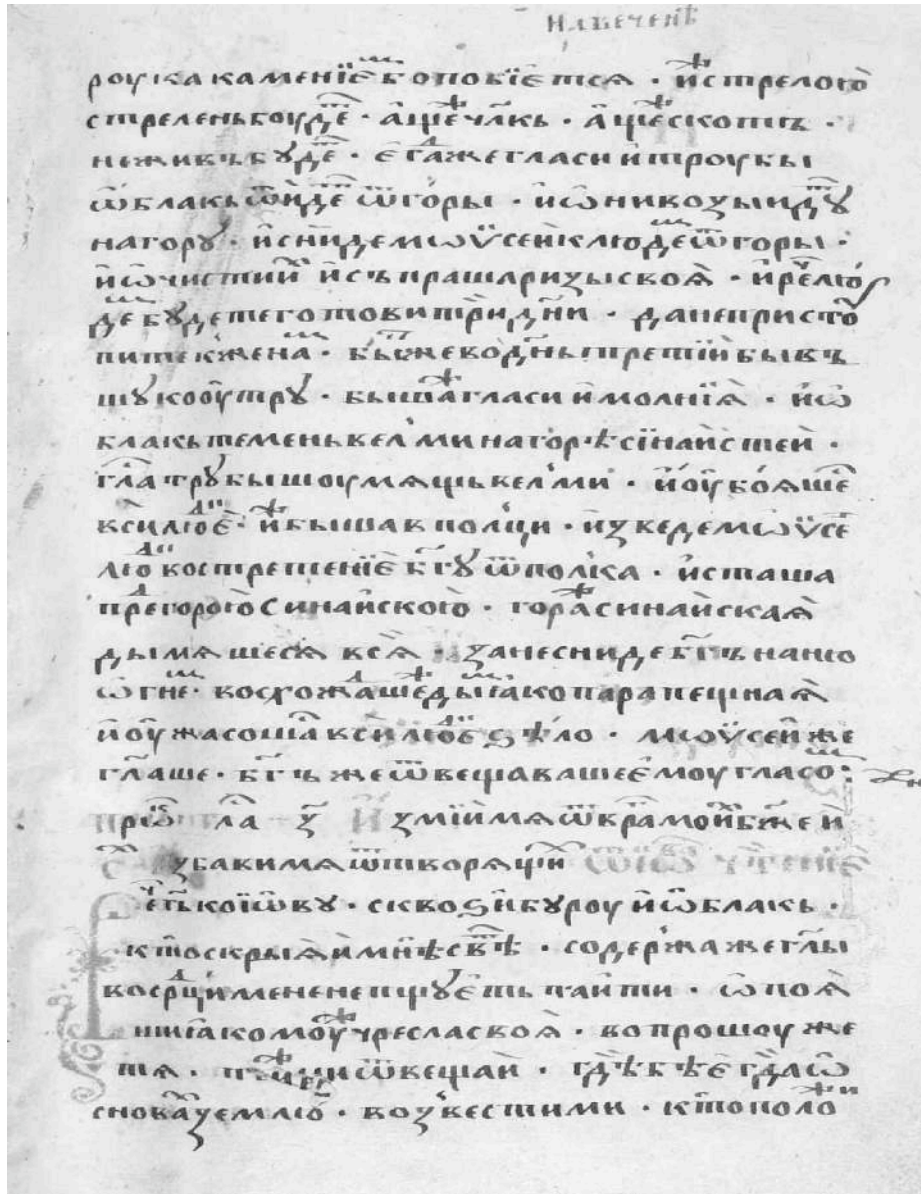 на вечень
роука каменїемъ бо побїется · и҆ стрелою
стреленъ боуде · а҆ще чл҃къ · а҆ще скотъ ·
не живъ буде · є҆гда же гласи и҆ троубы
ѡ҆блакъ ѿиде ѿ горы · и҆ ѡ҆ни возыиду
на гору · и҆ сниде мѡѷсей к людем ѿ горы ·
и҆ ѡ҆чисти и҆х и҆ съпраша ризы своя̀ · и҆ рече лю
дем будете готови три дн҃и · да не присто
пите к женам · бысть же во дн҃ь третїй бывъ
шу ко оу҆тру · быша же гласи и҆ молнїя̀ · и҆ ѡ҆
блакъ теменъ велми на горѣ сїнайстей ·
гла трубы шоумящь велми · и҆ оу҆бояше
вси людїе · и҆ быша в полци · изведе мѡѷсе
люд во стретенїе бг҃у ѿ полка · и҆ сташа
пред горою синайскою · гора же синайская̀
дымящеся вся̀ · зане сниде бг҃ъ на ню
ѡ҆гнем · восхождаше же дым ꙗко пара пещная̀
и҆ оу҆жасоша вси людїе ѕѣло · мѡѷсей же
гл҃аше · бг҃ъ же ѿвещаваше є҆моу гласом :
прѡ гла з҃ и҆зми мя ѿ враг мои бж҃е и
ст҃х избави мя ѿ творящи ѿ иѡв чтенїе
рече гь ко иѡ҆ву · сквоѕи буроу и҆ ѡ҆блакъ ·
кто скрыя̀й мнѣ свѣт · содержа же гл҃ы
в срдци мене не пщуєть таити · ѡпоя̀
ши ꙗко моуж чресла своя̀ · вопрошоу же
тя · ты же ми ѿвещай · гдѣ бѣ є҆гда ѡ
снова землю · возвести ми · кто положи